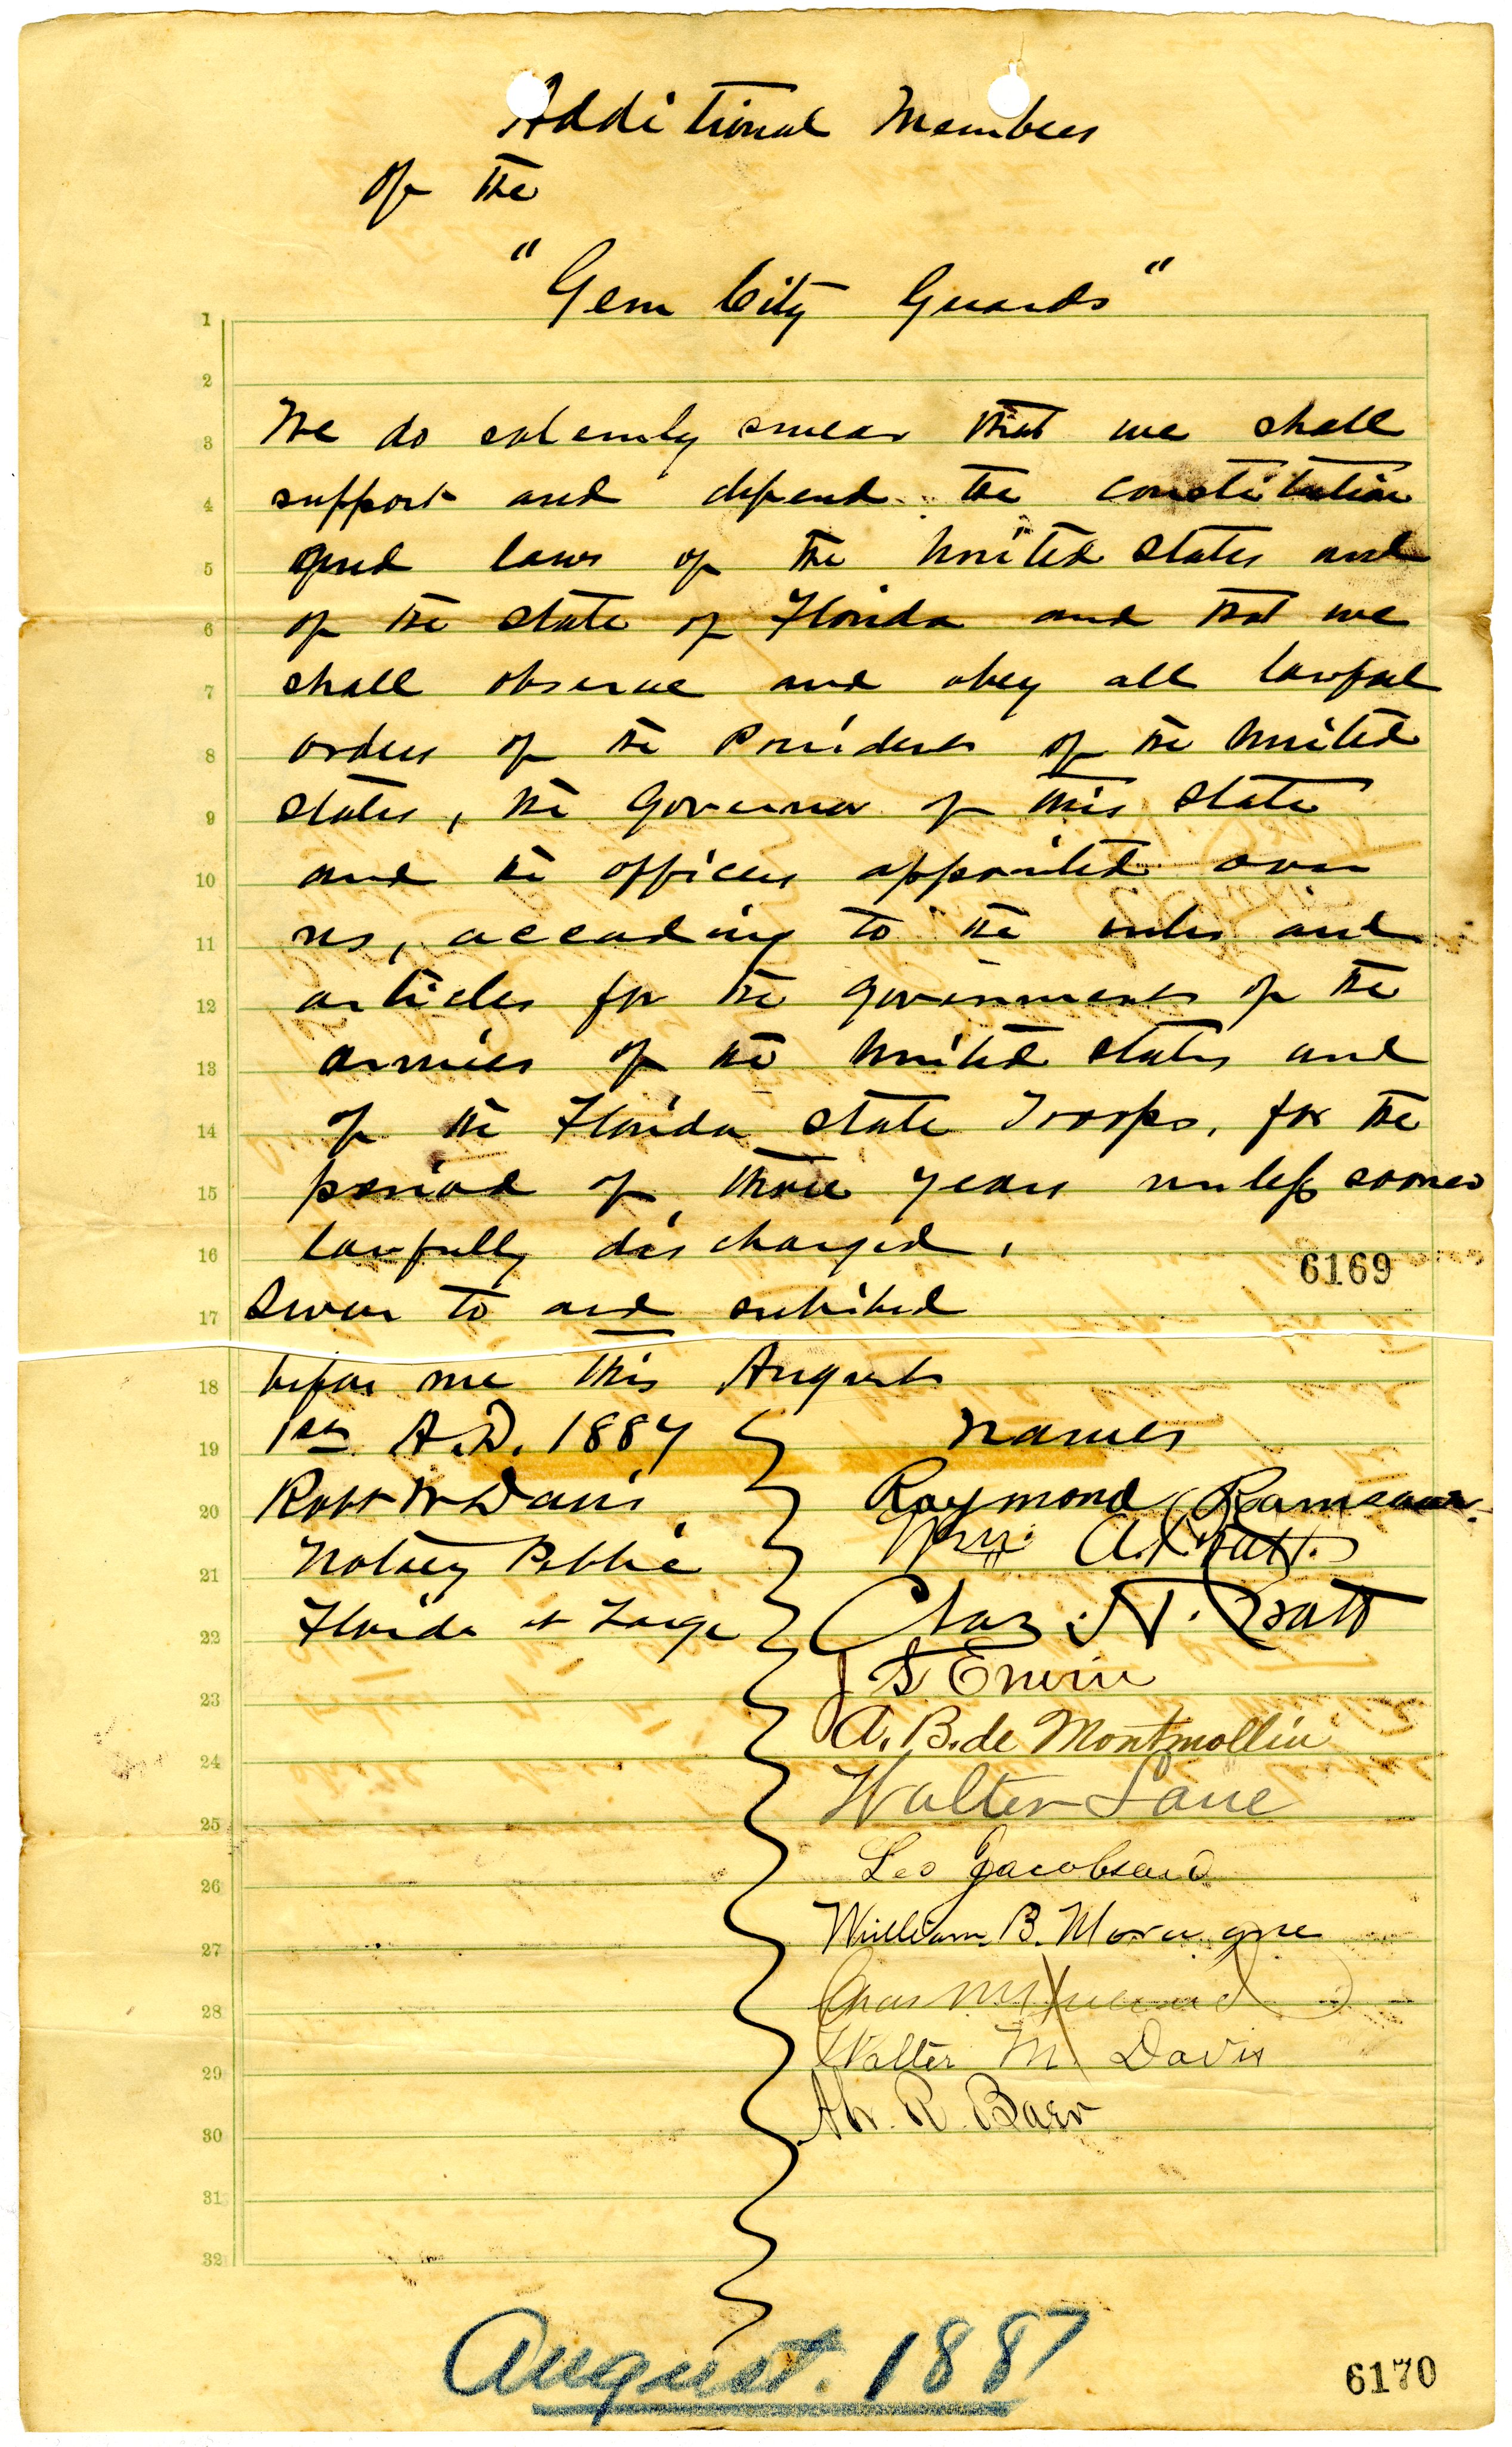 Additional Members
of the
"Gem City Guards"
1
2
3 We do solemnly swear that we shall
4 support and defend the constitution
5 and laws of the United States and
6 of the State of Florida and that we
7 shall observe and obey all lawful
8 orders of the President of the United
9 States, the Governor of this State
10 and the officers appointed over
11 us, according to the rules and
12 articles for the government of the
13 armies of the United States and
14 of the Florida State Troops, for the
15 period of three years unless sooner
16 lawfully discharged.
6169
17 Sworn to and subscribed
18 before me this August
19 1st A.D. 1887 Names
20 Robt W Davis Raymond Ramsaur.
21 Notary Public Wm. A. Pratt.
22 Florida at Large Chas. N. Pratt
23 J S Erwin
24 A. B. de Montmollin
25 Walter Lane
26 Leo Jacobson
27 William. B. Moragne
28 Chas
29 Walter M. Davis
30 Ab. R. Baer
31
32
August. 1887
6170